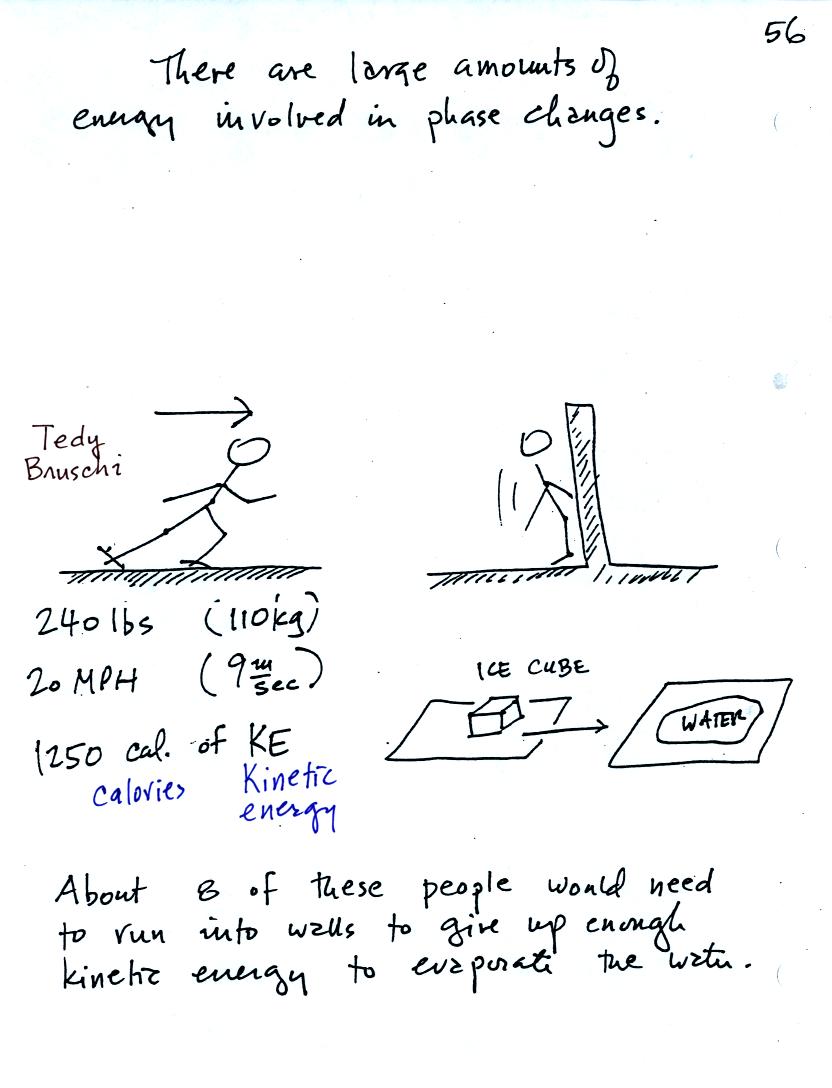 56
There are large amounts of
energy involved in phase changes.
Tedy
Bruschi
240 lbs (110kg)
20 MPH (9 m/sec)
1250 cal. of KE
calories Kinetic
energy
ICE CUBE
WATER
About 8 of these people would need
to run into walls to give up enough
kinetic energy to evaporate the water.